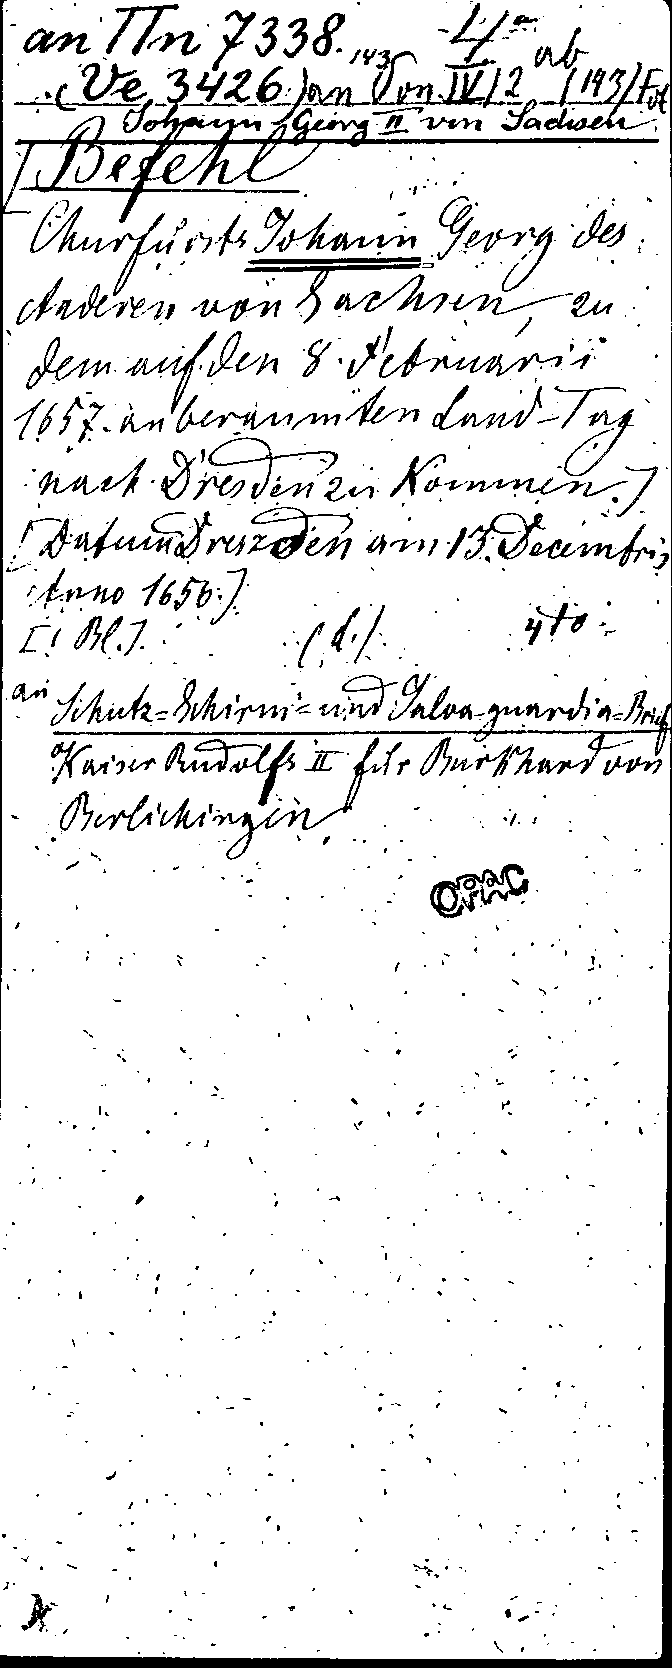 an Πn 7338. 4°
(Ve 3426) an Von IV/2 ab (143) Fol
Johann Georg II von Sachsen
[Befehl
Churfürsts Johann Georg des
Anderen von Sachsen, zu
dem auf den 8. Februarii
1657. anberaumten Land-Tag
nach Dresden zu Kommen.]
[Datum Dreszden am 13. Decembris
Anno 1656.]
[1 Bl.]. (d.). 4to.
an Schutz=Schirm=und Salva guardia=Brief
Kaiser Rudolfs II für Burkhard von
Berlichingen
OPAC